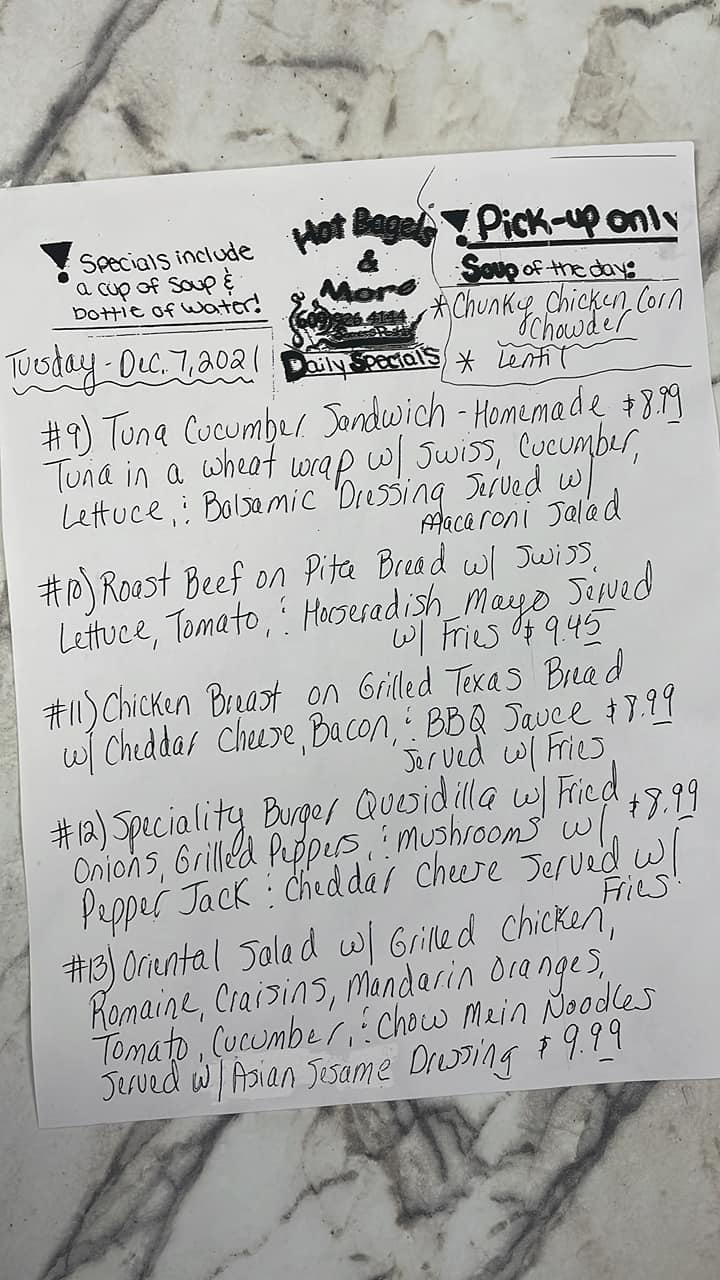 ! Specials include
a cup of soup &
bottle of water!
Hot Bagels
&
More
Daily Specials
! Pick-up only
Soup of the day:
* Chunky Chicken Corn
Chowder
* Lentil
Tuesday - Dec. 7, 2021
#9) Tuna Cucumber Sandwich - Homemade $8.99
Tuna in a wheat wrap w/ Swiss, Cucumber,
Lettuce, & Balsamic Dressing Served w/
Macaroni Salad
#10) Roast Beef on Pita Bread w/ Swiss,
Lettuce, Tomato, & Horseradish Mayo Served
w/ Fries $9.45
#11) Chicken Breast on Grilled Texas Bread
w/ Cheddar Cheese, Bacon, & BBQ Sauce $8.99
Served w/ Fries
#12) Speciality Burger Quesidilla w/ Fried $8.99
Onions, Grilled Peppers, & Mushrooms w/
Pepper Jack & Cheddar Cheese Served w/
Fries
#13) Oriental Salad w/ Grilled Chicken,
Romaine, Craisins, Mandarin Oranges,
Tomato, Cucumber, & Chow Mein Noodles
Served w/ Asian Sesame Dressing $9.99